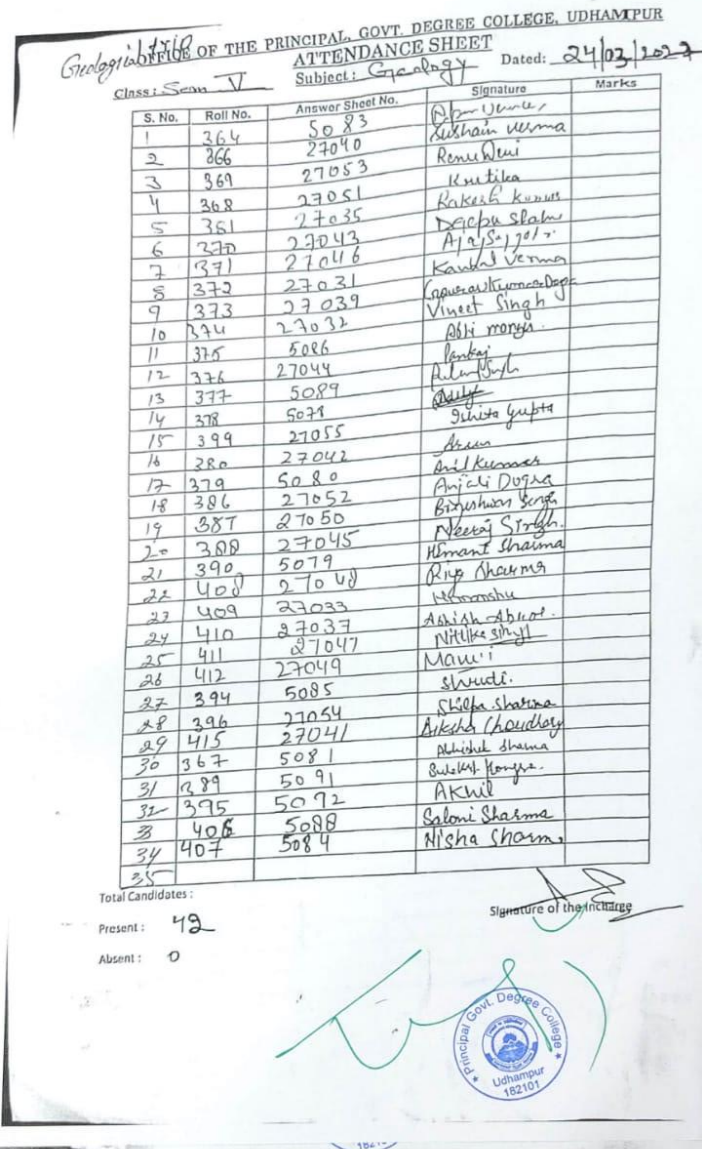 OFFICE OF THE PRINCIPAL, GOVT. DEGREE COLLEGE, UDHAMPUR
ATTENDANCE SHEET
Class: Sem V Subject: Geology Dated: 24/03/2027
S. No. Roll No. Answer Sheet No. Signature Marks
1 364 5083
2 366 27040 Sushain Verma
3 369 27053 Renu Devi
4 368 27051 Krutika
5 381 27035 Rakesh Kumar
6 370 27043
7 371 27046
8 372 27031 Verma
9 373 27039 Gourav Kumar Dogra
10 374 27032 Vineet Singh
11 375 5086
12 376 27044 Pankaj
13 377 5089
14 378 5078
15 399 27055 Ishita Gupta
16 380 27042 Arun
17 379 5080 Anil Kumar
18 386 27052 Anjali Dogra
19 387 27050
20 388 27045 Neeraj Singh.
21 390 5079 Hemant Sharma
22 408 27048 Riya Sharma
23 409 27033
24 410 27037 Ashish Abrol.
25 411 27047
26 412 27049
27 394 5085 Shruti.
28 396 27054 Shilpa Sharma
29 415 27041 Choudhary
30 367 5081 Abhishek Sharma
31 389 5091
32 395 5092 Akhil
33 406 5088 Saloni Sharma
34 407 5084 Nisha Sharma
35
Total Candidates :
Present : 42
Absent : 0
Signature of the Incharge
Principal Govt. Degree College
Udhampur
182101